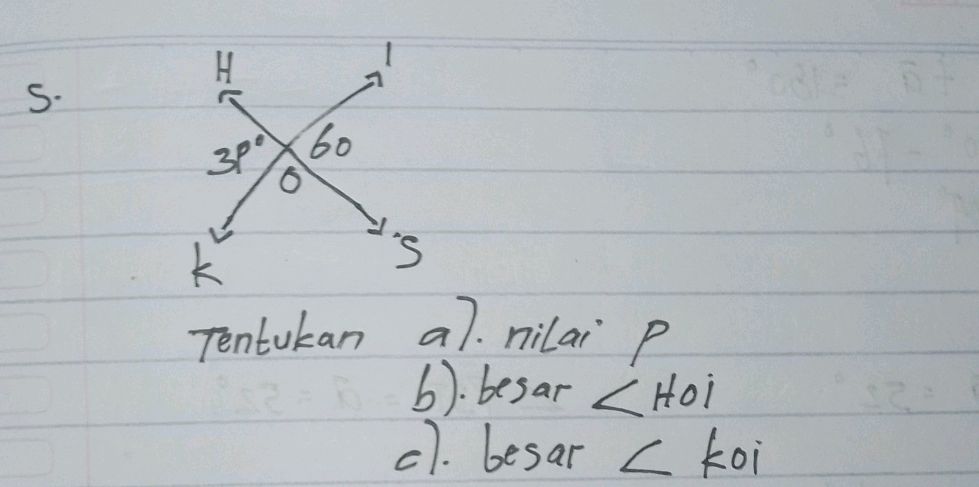 5.
H I
3p° 60
O
K S
Tentukan a). nilai p
b). besar < Hoi
c). besar < koi